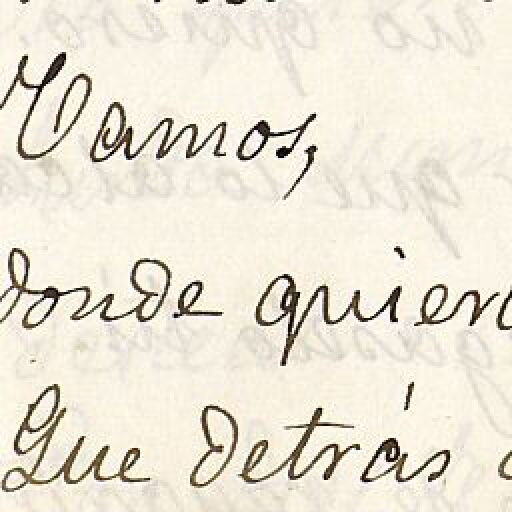 Vamos,
donde quier
Que detrás